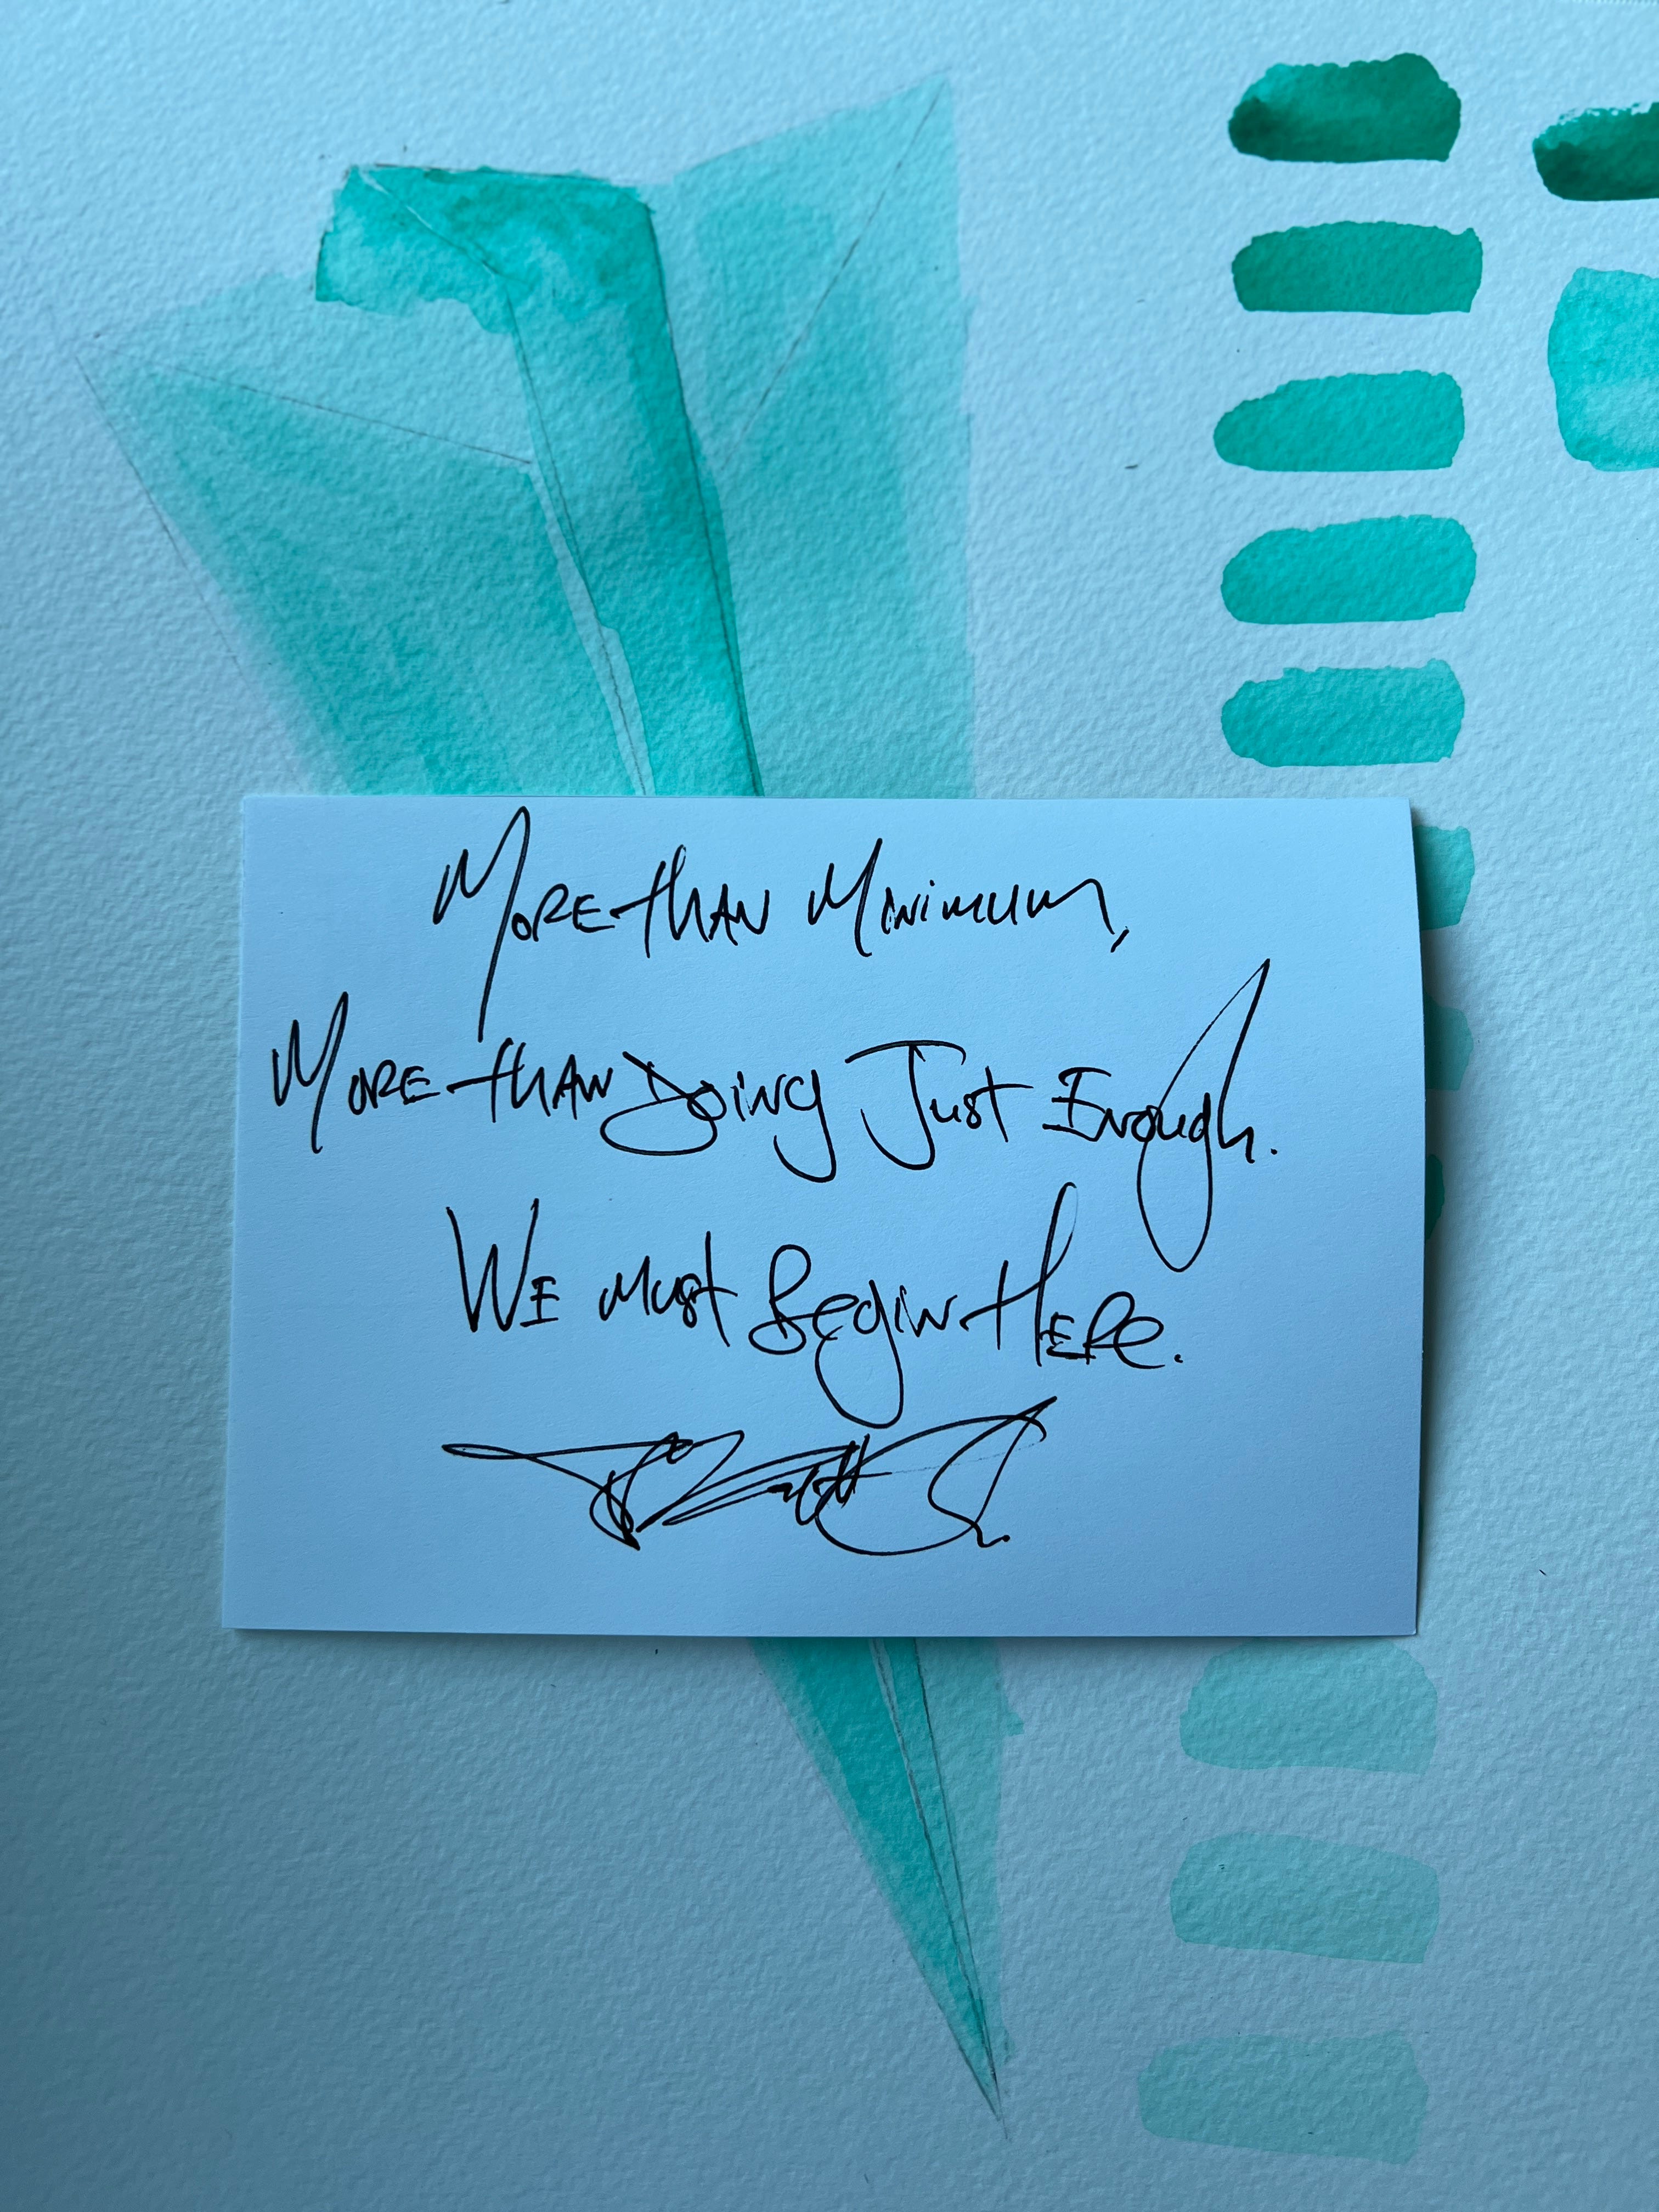 More than Minimum,
More than Doing Just Enough.
We must Begin Here.